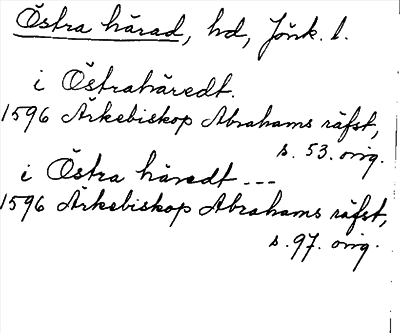 Östra härad, hd, Jönk. l.
i Östrahäredt.
1596 Ärkebiskop Abrahams räfst,
s. 53. orig.
i Östra häredt ---
1596 Ärkebiskop Abrahams räfst,
s. 97. orig.